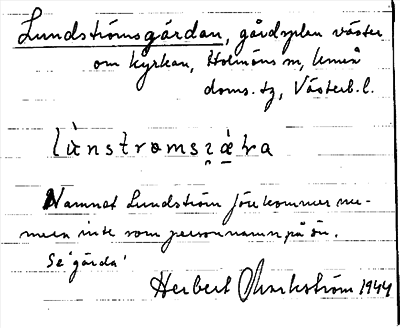 Lundströmsgärdan, gårdsplan väster
om kyrkan, Holmöns sn, Umeå
doms. tg, Västerb. l.
Namnet Lundström förekommer nu-
mera inte som personnamn på ön.
Se 'gärda'
Herbert Markström 1944